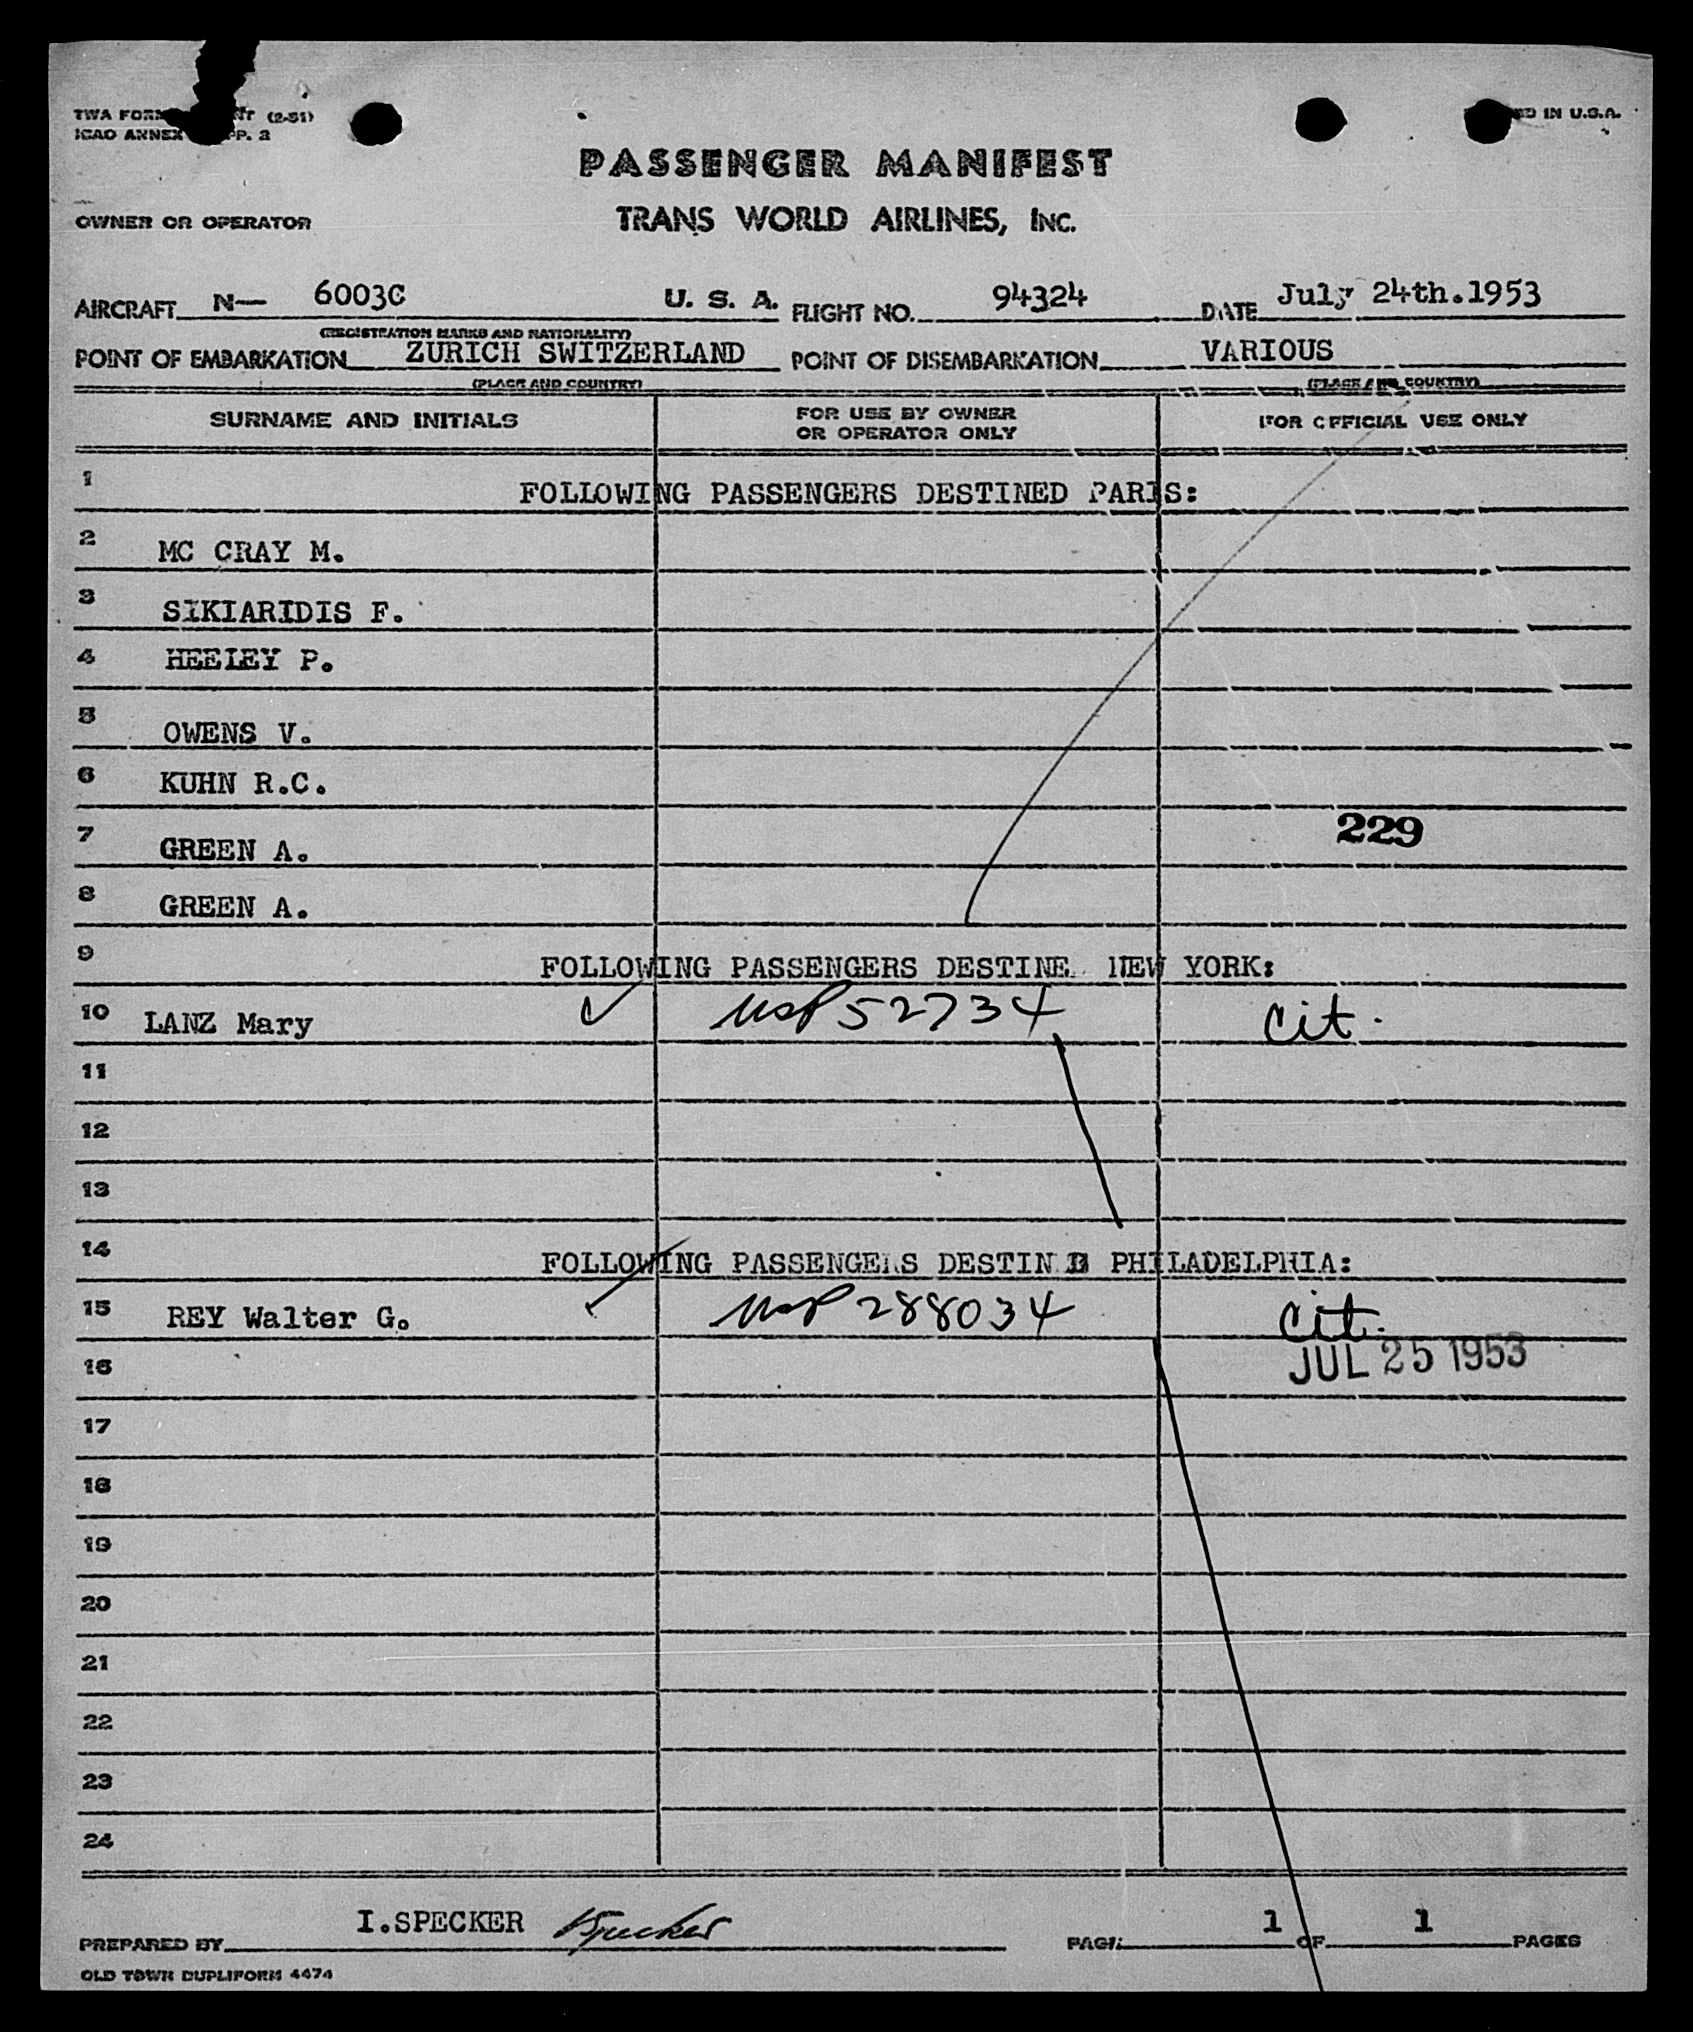 TWA FORM (2-51)
ICAO ANNEX APP. 3
IN U.S.A.
PASSENGER MANIFEST
OWNER OR OPERATOR
TRANS WORLD AIRLINES, INC.
AIRCRAFT N— 6003C U. S. A. FLIGHT NO. 94324 DATE July 24th.1953
(REGISTRATION MARKS AND NATIONALITY)
POINT OF EMBARKATION ZURICH SWITZERLAND POINT OF DISEMBARKATION VARIOUS
(PLACE AND COUNTRY) (PLACE AND COUNTRY)
SURNAME AND INITIALS FOR USE BY OWNER OR OPERATOR ONLY FOR OFFICIAL USE ONLY
1 FOLLOWING PASSENGERS DESTINED PARIS:
2 MC CRAY M.
3 SIKIARIDIS F.
4 HEELEY P.
5 OWENS V.
6 KUHN R.C.
7 GREEN A. 229
8 GREEN A.
9 FOLLOWING PASSENGERS DESTINE NEW YORK:
10 LANZ Mary USP 52734 Cit.
11
12
13
14 FOLLOWING PASSENGERS DESTIN D PHILADELPHIA:
15 REY Walter G. USP 288034 Cit.
16 JUL 25 1953
17
18
19
20
21
22
23
24
PREPARED BY I.SPECKER Specker PAGE 1 OF 1 PAGES
OLD TOWN DUPLIFORM 4474